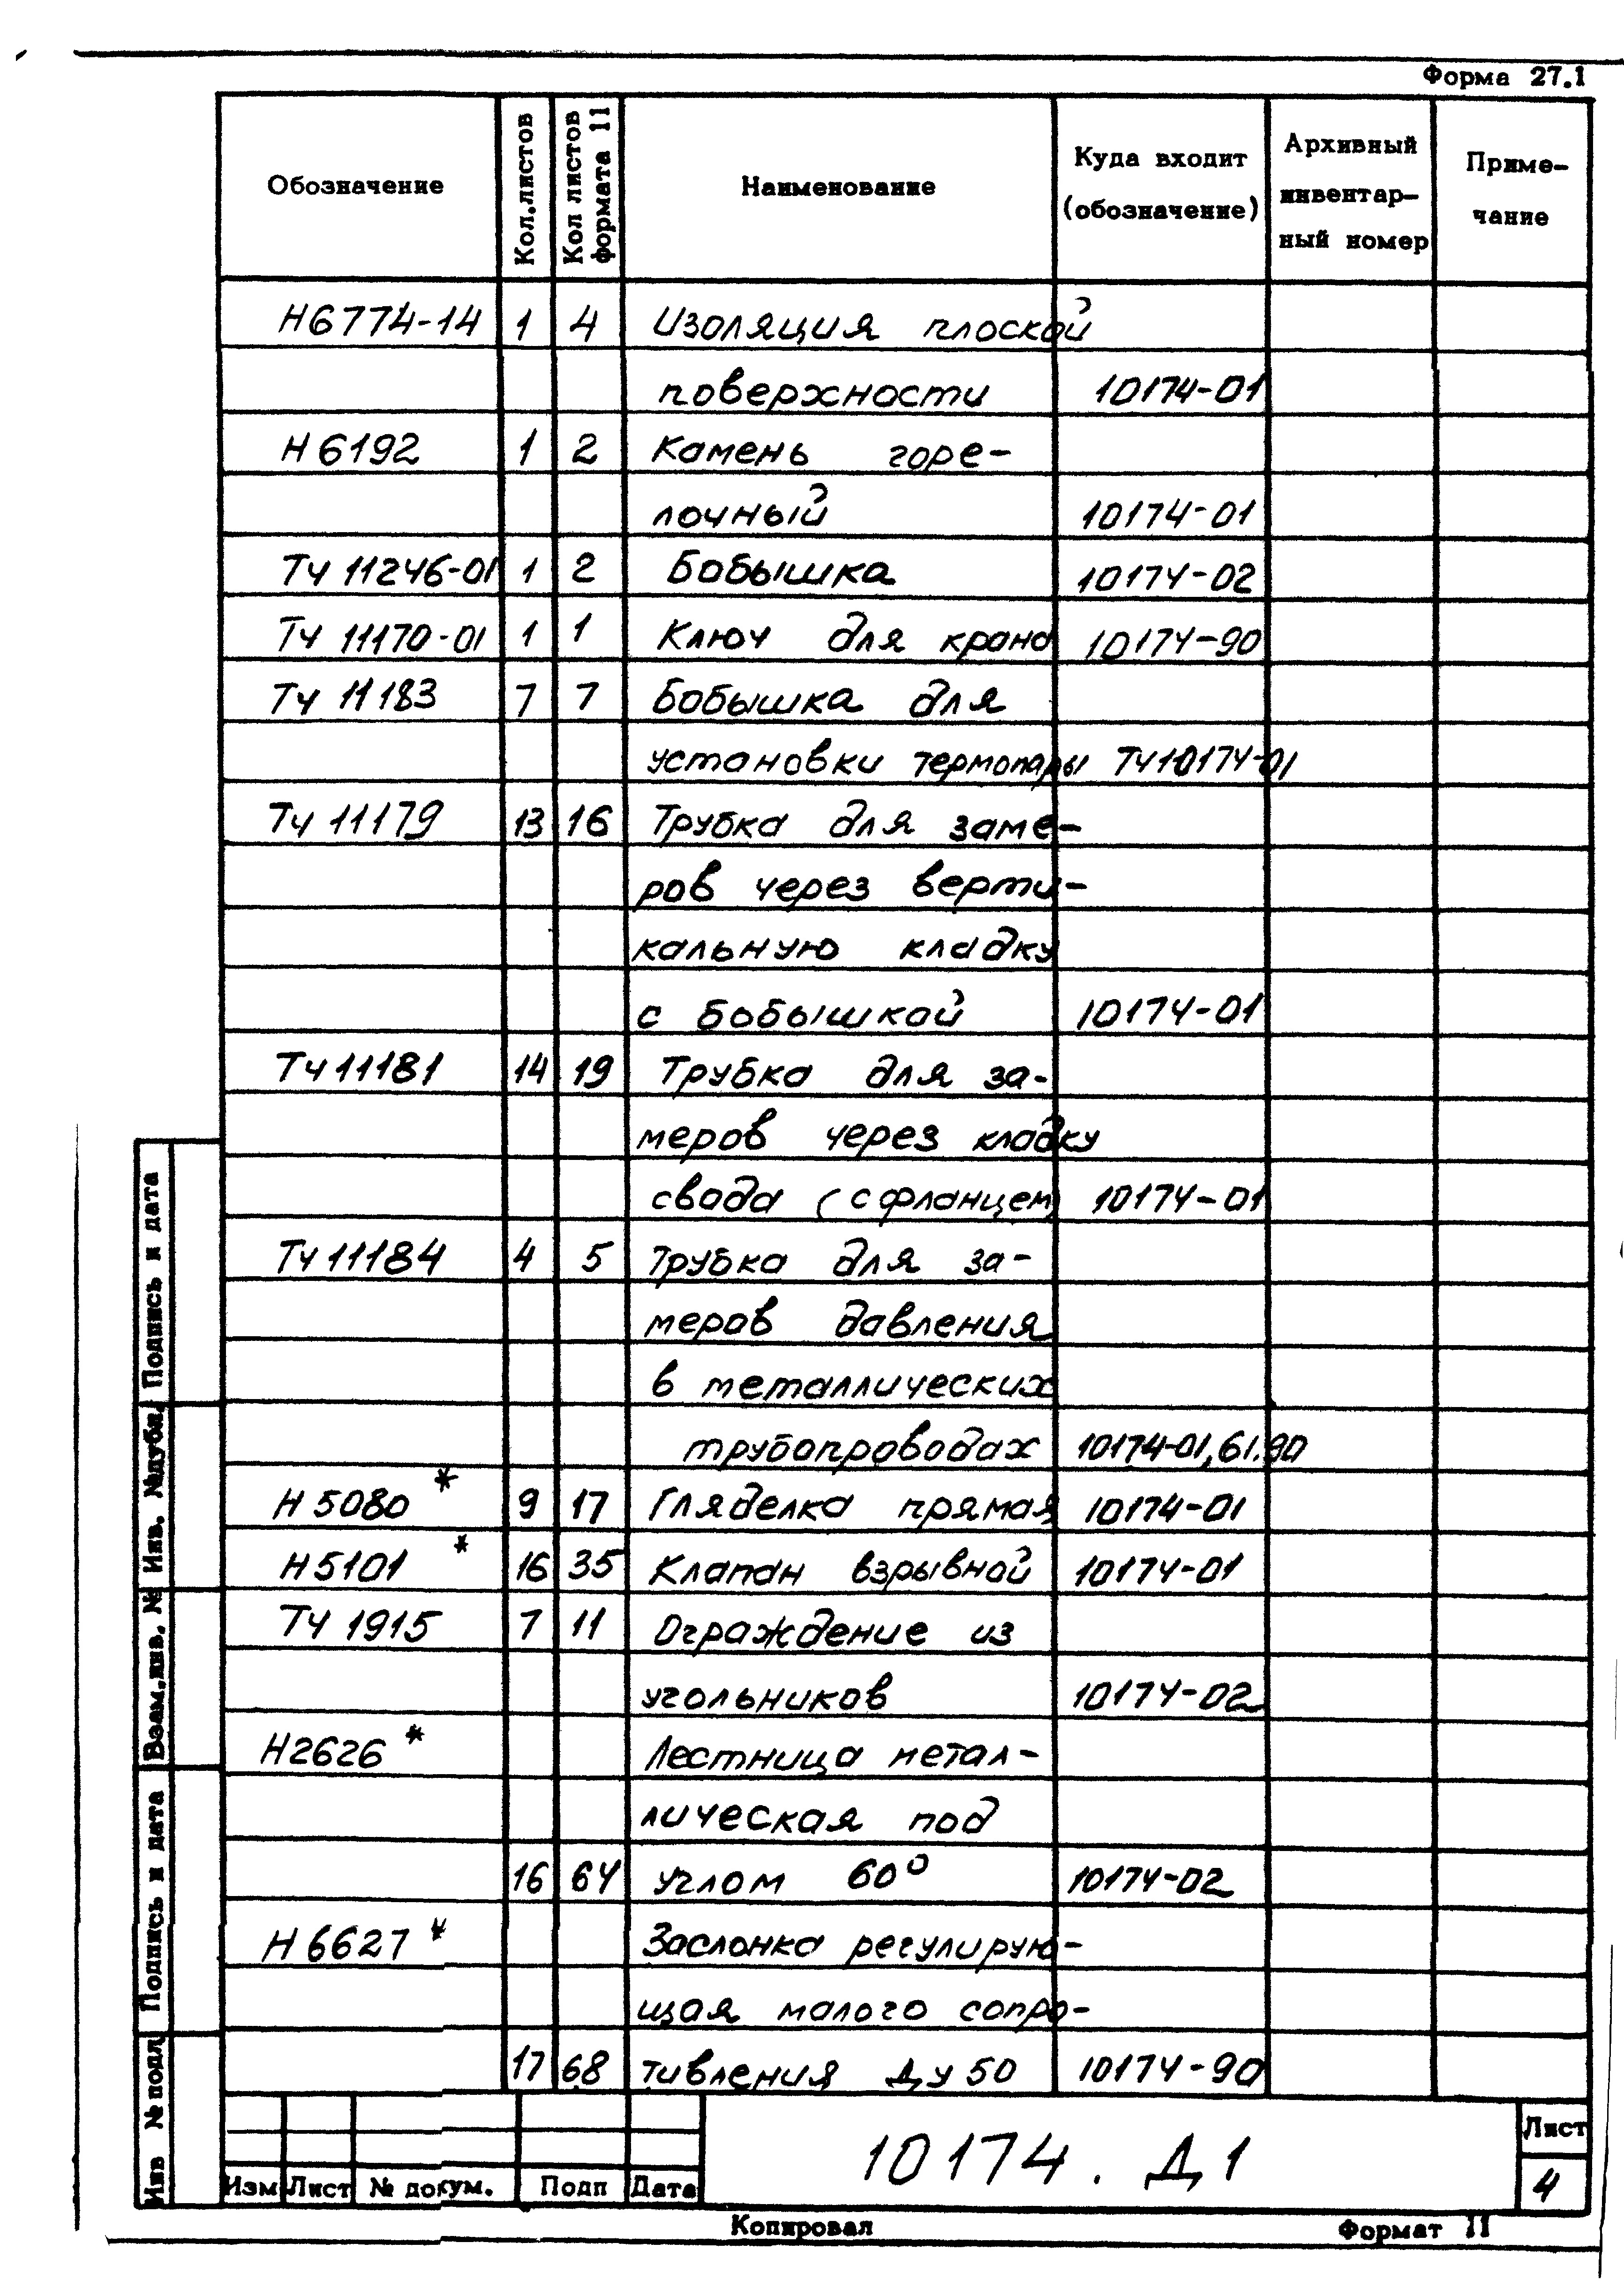 Форма 27.1
Обозначение Кол.листов Кол листов формата 11 Наименование Куда входит (обозначение) Архивный инвентар- ный номер Приме- чание
Н6774-14 1 4 Изоляция плоской
поверхности 10174-01
Н 6192 1 2 Камень горе-
лочный 10174-01
Тч 11246-01 1 2 Бобышка 10174-02
Тч 11170-01 1 1 Ключ для крана 10174-90
Тч 11183 7 7 Бобышка для
установки термопары Тч10174-01
Тч 11179 13 16 Трубка для заме-
ров через верти-
кальную кладку
с бобышкой 10174-01
Тч 11181 14 19 Трубка для за-
меров через кладку
свода (с фланцем) 10174-01
Тч 11184 4 5 Трубка для за-
меров давления
в металлических
трубопроводах 10174-01,61.90
Н 5080 * 9 17 Гляделка прямая 10174-01
Н 5101 * 16 35 Клапан взрывной 10174-01
Тч 1915 7 11 Ограждение из
угольников 10174-02
Н2626 * Лестница метал-
лическая под
16 64 углом 60° 10174-02
Н 6627 * Заслонка регулирую-
щая малого сопро-
17 68 тивления Ду 50 10174-90
Инв № подл Подпись и дата Взам.инв. № Инв. №дубл. Подпись и дата
Изм Лист № докум. Подп Дата
10174. Д1
Лист
4
Копировал Формат 11